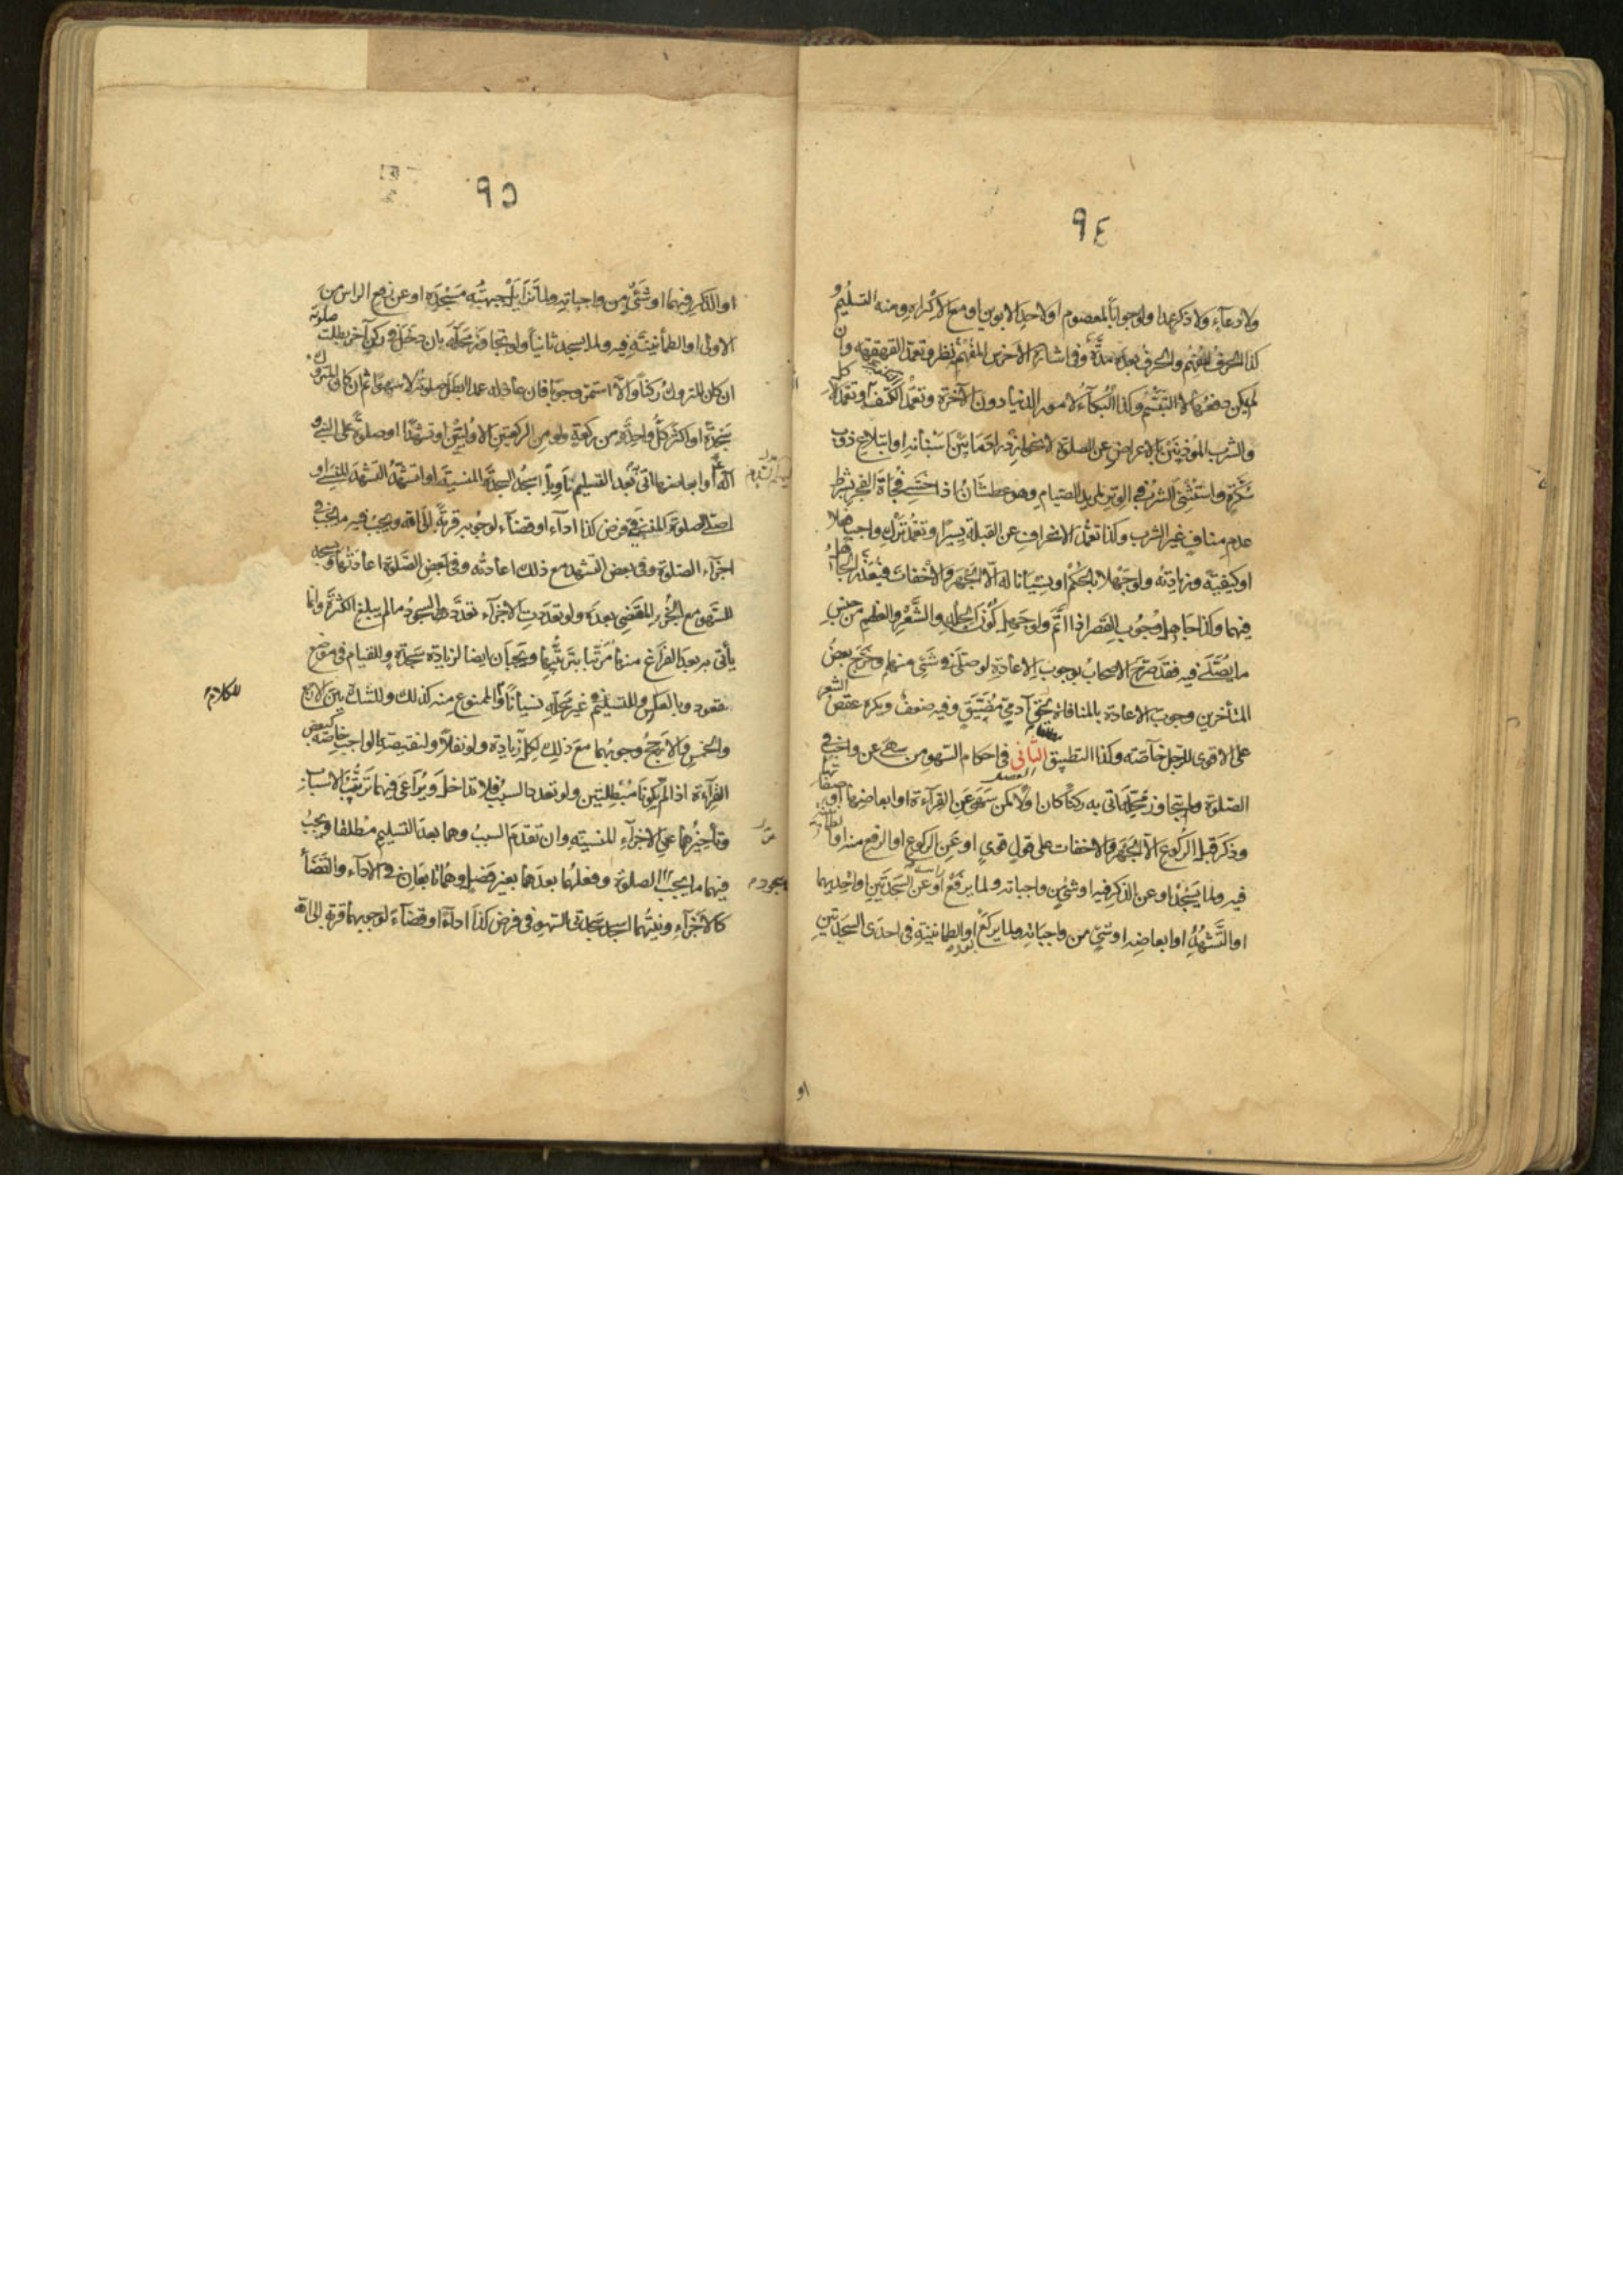 ٩٤
ولا دعاء ولا ذكر عمدا ولو جوابا لمعصوم او لاحد الابوين او مع الاكراه ومنه التسليم و
كذا الحرف المفهم والحرف بعده مدّة وفي اشارة الاخرس المفهمة نظر وتعمد القهقهة وان
لم يكن دفعها لا التبسم وكذا البكاء لامور الدنيا دون الآخرة وتعمد الكتف وتعمد الاكل
والشرب المؤذنين بالاعراض عن الصلوة لا نحو ازدراد ما بين اسنانه او ابتلاع ذوب
سكرة واستثنى الشرب في الوتر لمريد الصيام وهو عطشان اذا خشي فجأة الفجر بشرط
عدم مناف غير الشرب وكذا تعمد الانحراف عن القبلة يسيرا وتعمد ترك واجب فعلا
او كيفية وزيادته ولو جهلا بالحكم او نسيانا له الا الجهر والاخفات فيعذر الجاهل
فيهما وكذا جاهل وجوب القصر اذا اتم ولو جهل كون الجلد والشعر والعظم من جنس
ما يصلى فيه فقد صرح الاصحاب بوجوب الاعادة لو صلى في شئ منها وخرج بعض
المتأخرين وجوب الاعادة بالمنافاة بحق آدمي مضيق وفيه ضعف ويكره عقص الشعر
على الاقوى للرجل خاصة وكذا التطبيق الثاني في احكام السهو من سهى عن واجب في
الصلوة ولم يتجاوز محله اتى به ركنا كان او لا كمن سهى عن القراءة او ابعاضها او صفاتها
وذكر قبل الركوع الا الجهر والاخفات على قول قوي او عن الركوع او الرفع منه او الطمأنينة
فيه ولما يسجد او عن الذكر فيه او شئ من واجباته ولما يرفع او عن السجدتين او احديهما
او التشهد او ابعاضه او شئ من واجباته ولما يركع او الطمانينة في احدى السجدتين
او
٩٥
او الذكر فيهما او شئ من واجباته ولما تزايل جبهته مسجده او عن رفع الراس من
الاولى او الطمأنينة فيه ولما يسجد ثانيا ولو تجاوز محله بان دخل في ركن آخر بطلت صلوته
ان كان المتروك ركنا والا استمر وجوبا فان عاد له عمدا بطل صلوته لا سهوا ثم ان كان المتروك
سجدة او اكثر كل واحدة من ركعة ولو من الركعتين الاوليين او تشهدا او صلوة على النبي و
آله او ابعاضها اتى بعد التسليم ناويا اسجد السجدة المنسية او اتشهد التشهد المنسي او
اصلي الصلوة المنسية في فرض كذا اداء او قضاء لوجوبه قربة الى الله ويجب فيه ما يجب في
اجزاء الصلوة وفي بعض التشهد مع ذلك اعادته وفي بعض الصلوة اعادتها ويسجد
للسهو مع الجزء المقضي بعده ولو تعددت الاجزاء تعدد لها السجود ما لم يبلغ الكثرة وانما
يأتي به بعد الفراغ منها مرتبا بترتيبها ويجبان ايضا لزيادة سجدة وللقيام في موضع
قعود وبالعكس وللتسليم في غير محله نسيانا والممنوع منه كذلك وللشك بين الاربع
للكلام
والخمس والارجح وجوبهما مع ذلك لكل زيادة ولو نفلا ولنقيصة الواجب خاصة كبعض
القراءة اذا لم يكونا مبطلتين ولو تعدد السبب فلا تداخل ويراعى فيهما ترتيب الاسباب
وتأخيرهما عن الاجزاء المنسية وان تقدم السبب وهما بعد التسليم مطلقا ويجب
فيهما ما يجب الصلوة وفعلهما بعدها بغير فصل وهما تابعان في الاداء والقضاء
كالاجزاء ونيتهما اسجد سجدتي السهو في فرض كذا اداء او قضاء لوجوبهما قربة الى الله